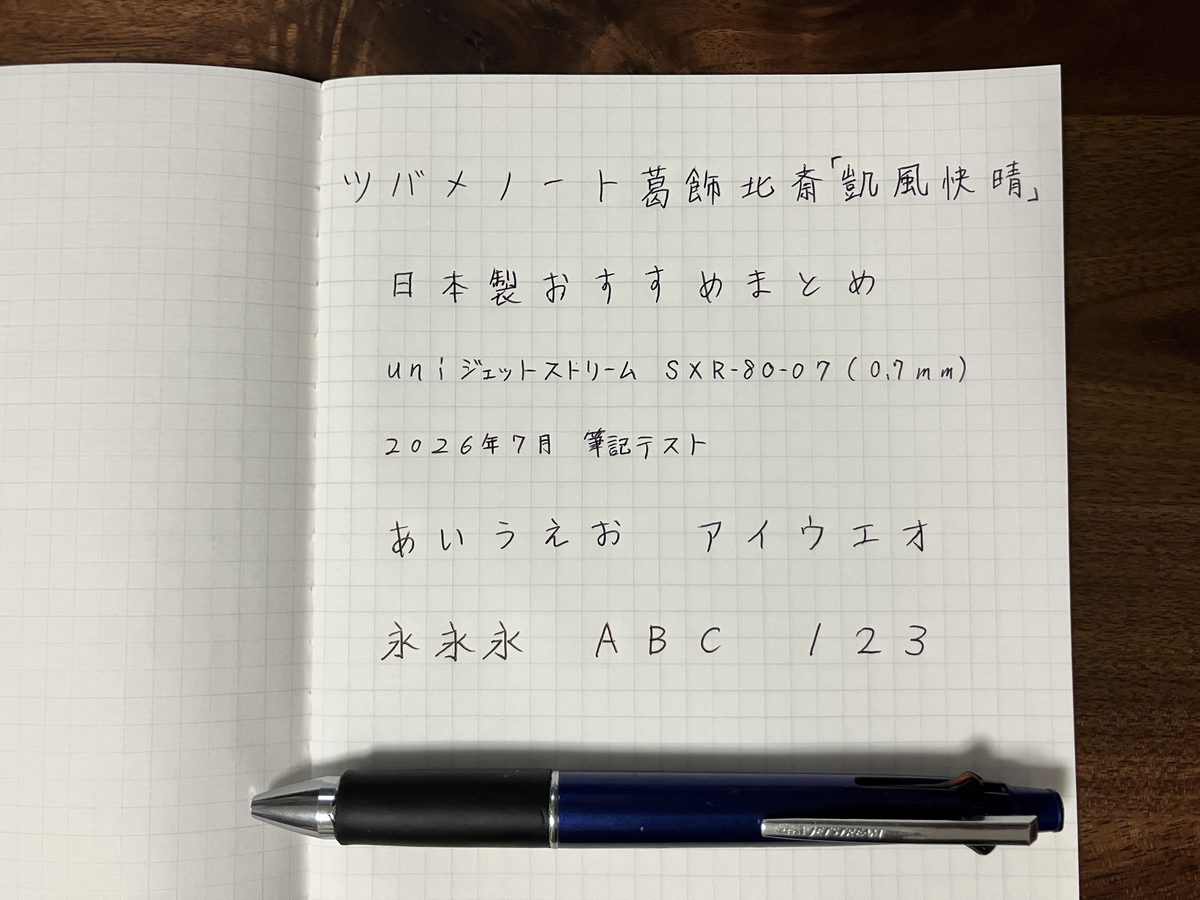 ツバメノート葛飾北斎「凱風快晴」
日本製おすすめまとめ
uniジェットストリーム SXR-80-07(0.7mm)
2026年7月 筆記テスト
あいうえお アイウエオ
永永永 ABC 123
JETSTREAM